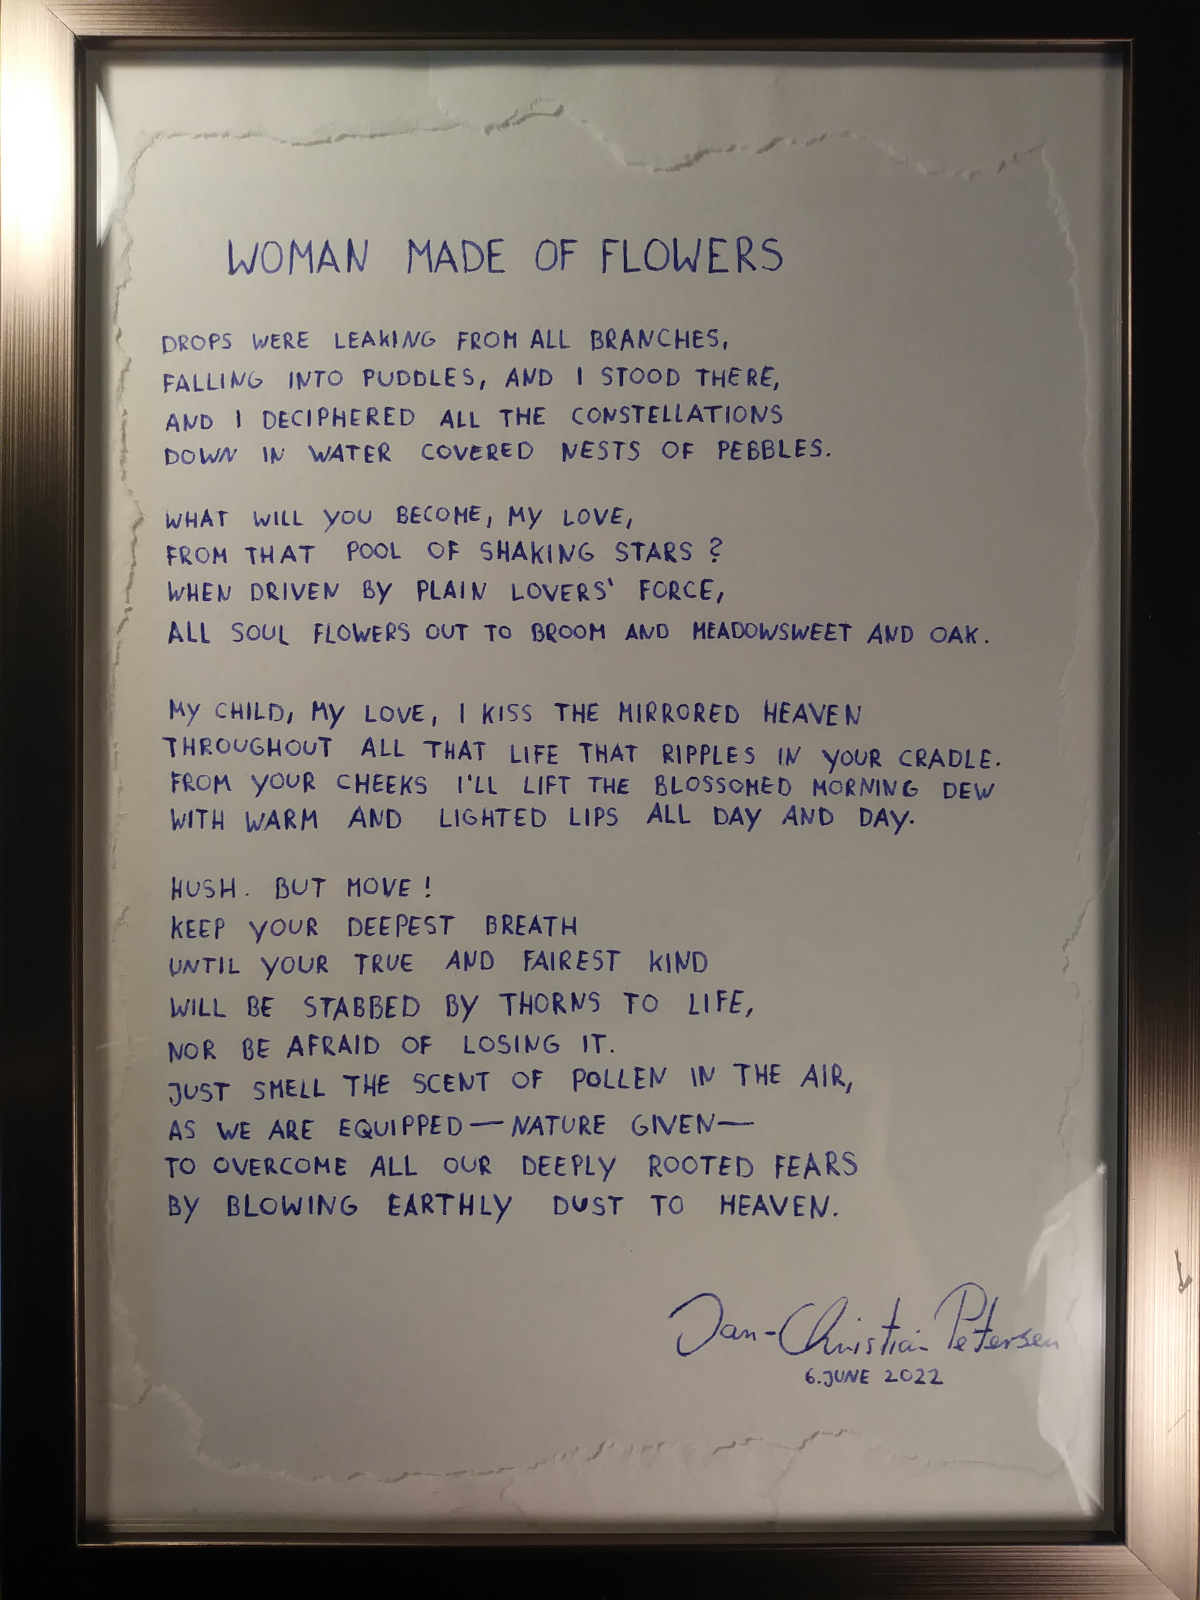 WOMAN MADE OF FLOWERS
DROPS WERE LEAKING FROM ALL BRANCHES,
FALLING INTO PUDDLES, AND I STOOD THERE,
AND I DECIPHERED ALL THE CONSTELLATIONS
DOWN IN WATER COVERED NESTS OF PEBBLES.
WHAT WILL YOU BECOME, MY LOVE,
FROM THAT POOL OF SHAKING STARS?
WHEN DRIVEN BY PLAIN LOVERS' FORCE,
ALL SOUL FLOWERS OUT TO BROOM AND MEADOWSWEET AND OAK.
MY CHILD, MY LOVE, I KISS THE MIRRORED HEAVEN
THROUGHOUT ALL THAT LIFE THAT RIPPLES IN YOUR CRADLE.
FROM YOUR CHEEKS I'LL LIFT THE BLOSSOMED MORNING DEW
WITH WARM AND LIGHTED LIPS ALL DAY AND DAY.
HUSH. BUT MOVE!
KEEP YOUR DEEPEST BREATH
UNTIL YOUR TRUE AND FAIREST KIND
WILL BE STABBED BY THORNS TO LIFE,
NOR BE AFRAID OF LOSING IT.
JUST SMELL THE SCENT OF POLLEN IN THE AIR,
AS WE ARE EQUIPPED—NATURE GIVEN—
TO OVERCOME ALL OUR DEEPLY ROOTED FEARS
BY BLOWING EARTHLY DUST TO HEAVEN.
Jan-Christian Petersen
6. JUNE 2022